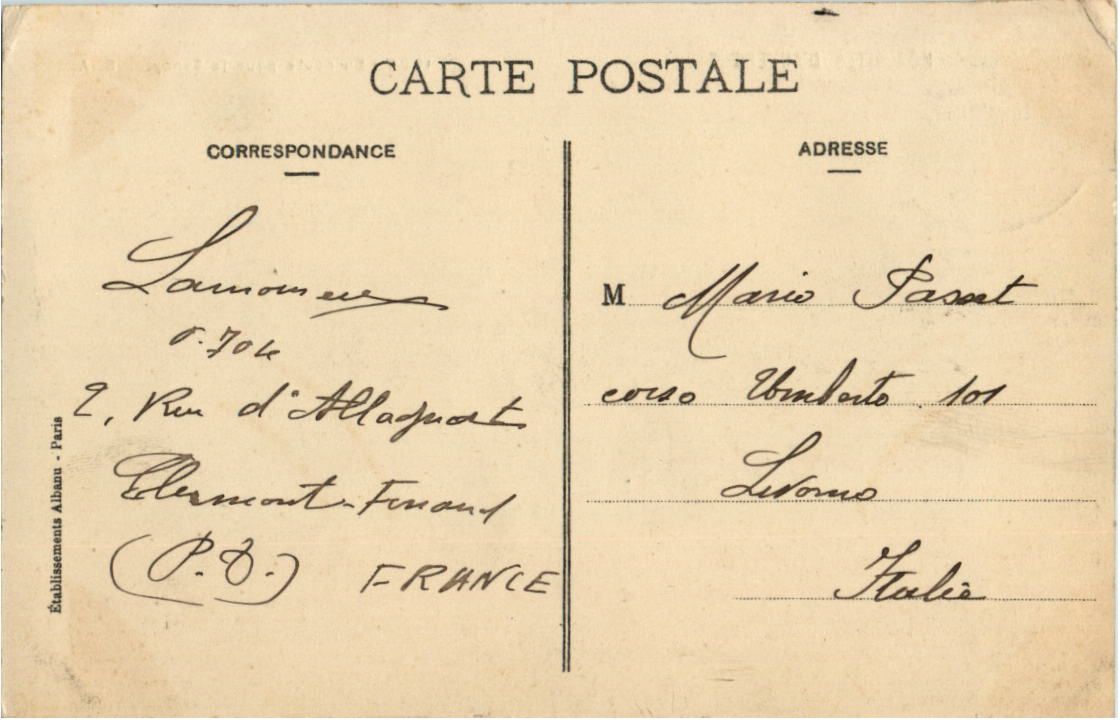 CARTE POSTALE
CORRESPONDANCE
2, Rue d'Allagnat
Clermont-Ferrand
(P.D.) FRANCE
Établissements Albanu - Paris
ADRESSE
M Mario Passat
corso Umberto 101
Livorno
Italie